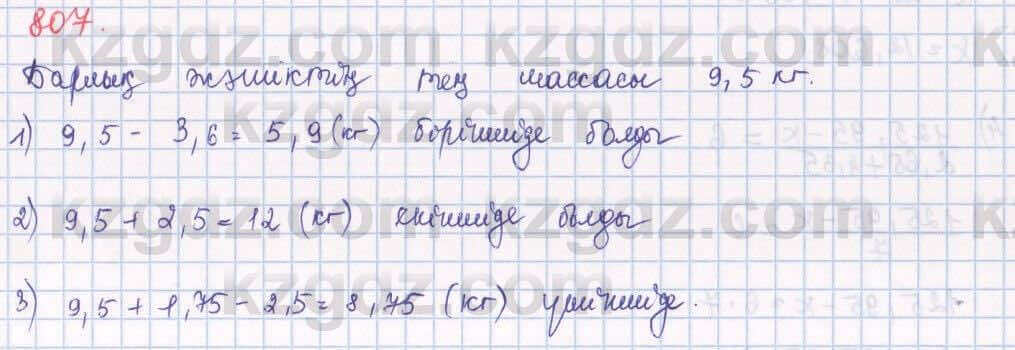 807.
Барлық жәшіктің тең массасы 9,5 кг.
1) 9,5 - 3,6 = 5,9 (кг) бірішіде болды
2) 9,5 + 2,5 = 12 (кг) екішіде болды
3) 9,5 + 1,75 - 2,5 = 8,75 (кг) үшішіде.
kzgdz.com